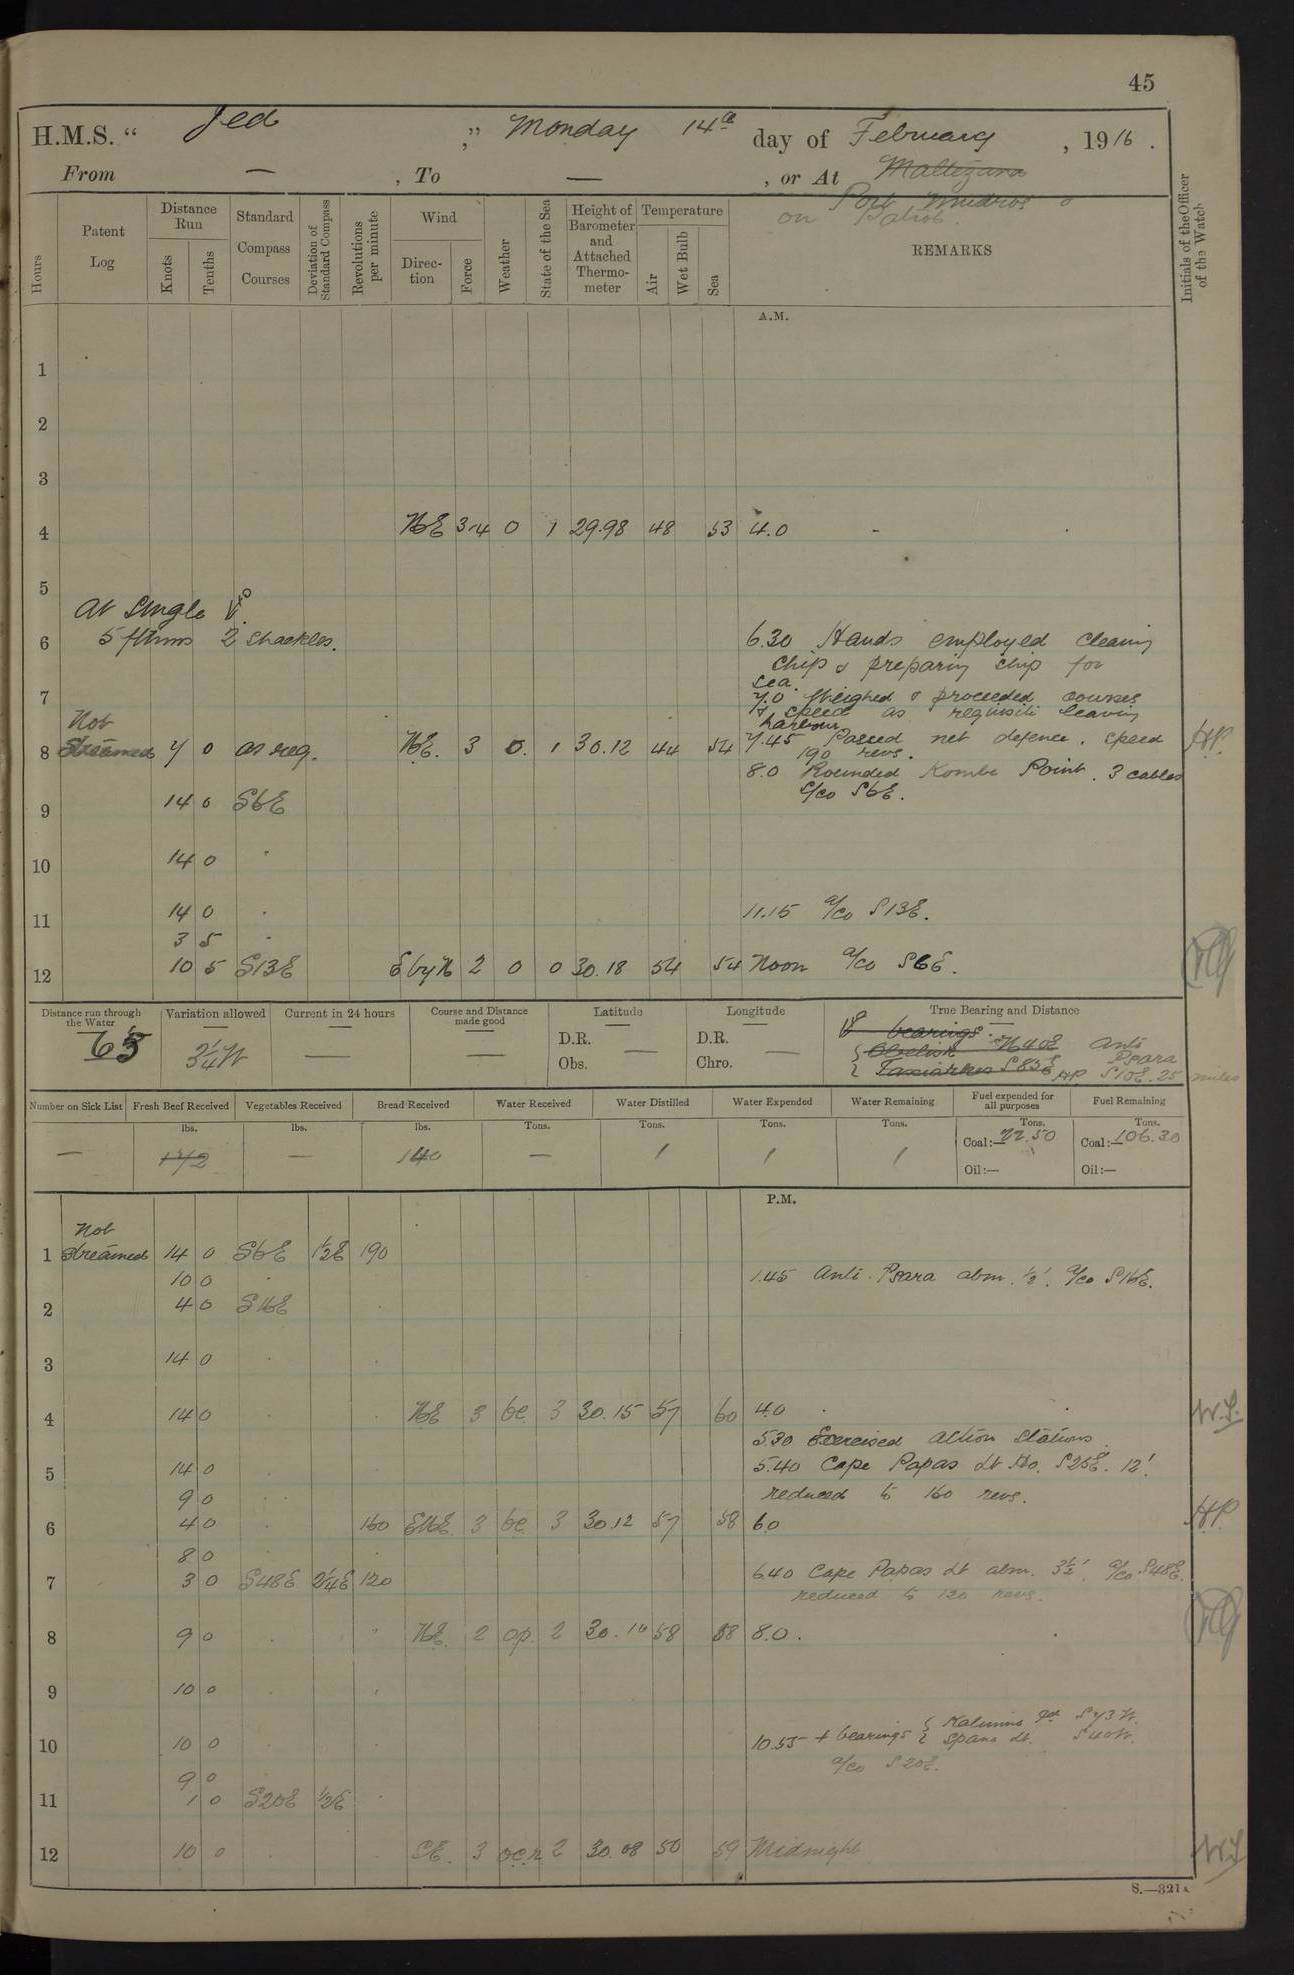 45
H.M.S. "Jed," Monday 14th day of February, 1916.
From — , To — , or At Maltezana
Port Mudros
on Patrol.
Hours
Patent Log
Distance Run
Knots
Tenths
Standard Compass Courses
Deviation of Standard Compass
Revolutions per minute
Wind
Direction
Force
Weather
State of the Sea
Height of Barometer and Attached Thermometer
Temperature
Air
Wet Bulb
Sea
REMARKS
Initials of the Officer of the Watch
A.M.
1
2
3
4 NE 3-4 0 1 29.98 48 53 4.0 -
5
At single
6 5 fthms 2 shackles. 6.30 Hands employed cleaning
ship & preparing ship for
sea.
7 7.0 Weighed & proceeded courses
& speed as requisite leaving
harbour
Not
8 Streamed 7 0 as req. NE. 3 0. 1 30.12 44 54 7.45 Passed net defence. speed HP.
190 revs.
8.0 Rounded Kombi Point. 3 cables
c/co S6E.
9 14 0 S6E
10 14 0 "
11 14 0 . 11.15 a/co S13E.
3 5 .
12 10 5 S13E E by N 2 0 0 30.18 54 54 Noon a/co S6E.
Distance run through the Water
Variation allowed
Current in 24 hours
Course and Distance made good
Latitude
Longitude
True Bearing and Distance
65
3¼W
—
—
D.R.
Obs. —
D.R.
Chro. —
bearings.
Obelisk N40E
Taxiarkes S83E HP
Anti
Psara
S10E. 25 miles
Number on Sick List
Fresh Beef Received
Vegetables Received
Bread Received
Water Received
Water Distilled
Water Expended
Water Remaining
Fuel expended for all purposes
Fuel Remaining
lbs. lbs. lbs. Tons. Tons. Tons. Tons. Tons. Tons.
— 172 — 140 — 1 1 1 Coal:—22.50 Coal:—106.30
Oil:— Oil:—
P.M.
Not
1 Streamed 14 0 S6E ½E 190
10 0 . 1.45 Anti Psara abm. ½'. a/co S16E.
2 4 0 S16E .
3 14 0 . .
4 14 0 . . NE 3 bc. 3 30.15 57 60 4.0 . W.S.
5.30 Exercised action stations.
5 14 0 . 5.40 Cape Papas Lt Ho. S25E. 12'.
9 0 . reduced to 160 revs.
6 4 0 . 160 ENE 3 bc 3 30.12 57 58 6.0 HP.
8 0 .
7 3 0 S48E 2¼E 120 6.40 Cape Papas Lt abm. 3½'. a/co S48E.
reduced to 120 revs.
8 9 0 . . NE. 2 op. 2 30.10 58 58 8.0 .
9 10 0 . .
10 10 0 . 10.55 + bearings { Kalimno S73W.
Spano Lt. S40W.
a/co S20E.
9 0
11 1 0 S20E ½E .
12 10 0 . . SE. 3 ocr 2 30.08 50 59 Midnight W.S.
S.—321A